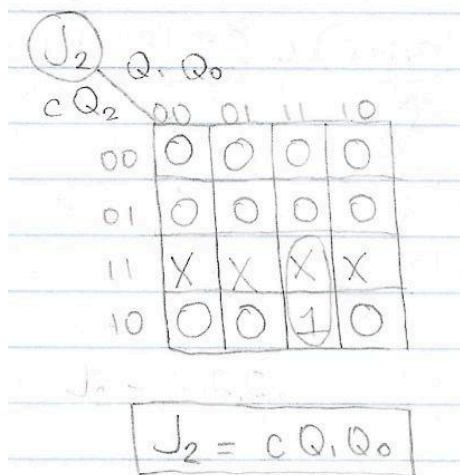 J₂
Q₁ Q₀
C Q₂ 00 01 11 10
00 0 0 0 0
01 0 0 0 0
11 X X X X
10 0 0 1 0
J₂ = C Q₁ Q₀